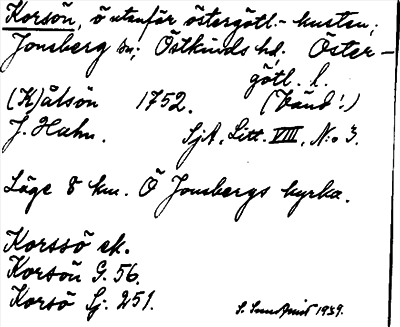 Korsön, ö utanför östergötl.- kusten,
Jonsberg sn; Östkinds hd. Öster-
götl. l.
(K)ålsön 1752. (Vänd!)
J. Hahn. SjA, Litt. VIII, No 3.
Läge 8 km. Ö Jonsbergs kyrka.
Korssö ek.
Korsön G. 56.
Korsö Sj. 251.
S. 1939.